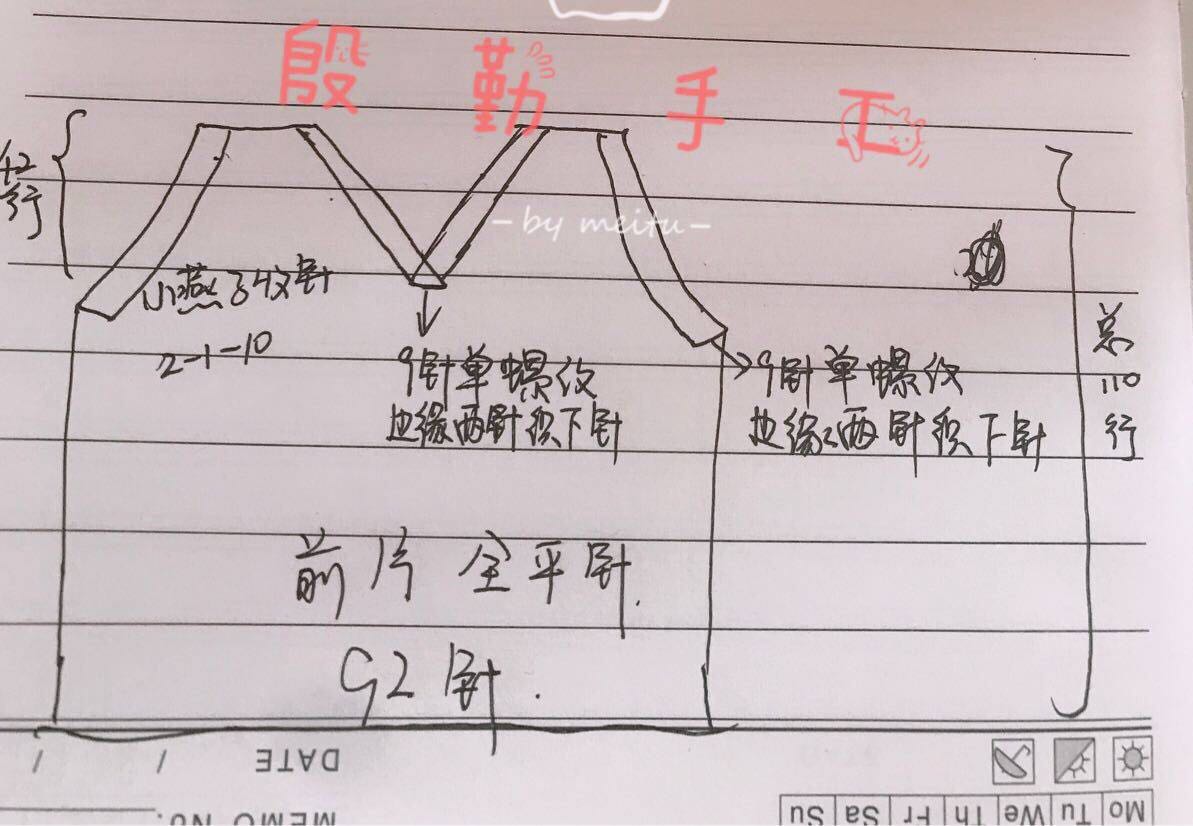 殷勤手工
-by meitu-
42
行
小燕子收针
2-1-10
9针单螺纹
边缘两针织下针
9针单螺纹
边缘两针织下针
总
110
行
前片 全平针.
92针.
DATE / /
MEMO NO.
Mo Tu We Th Fr Sa Su